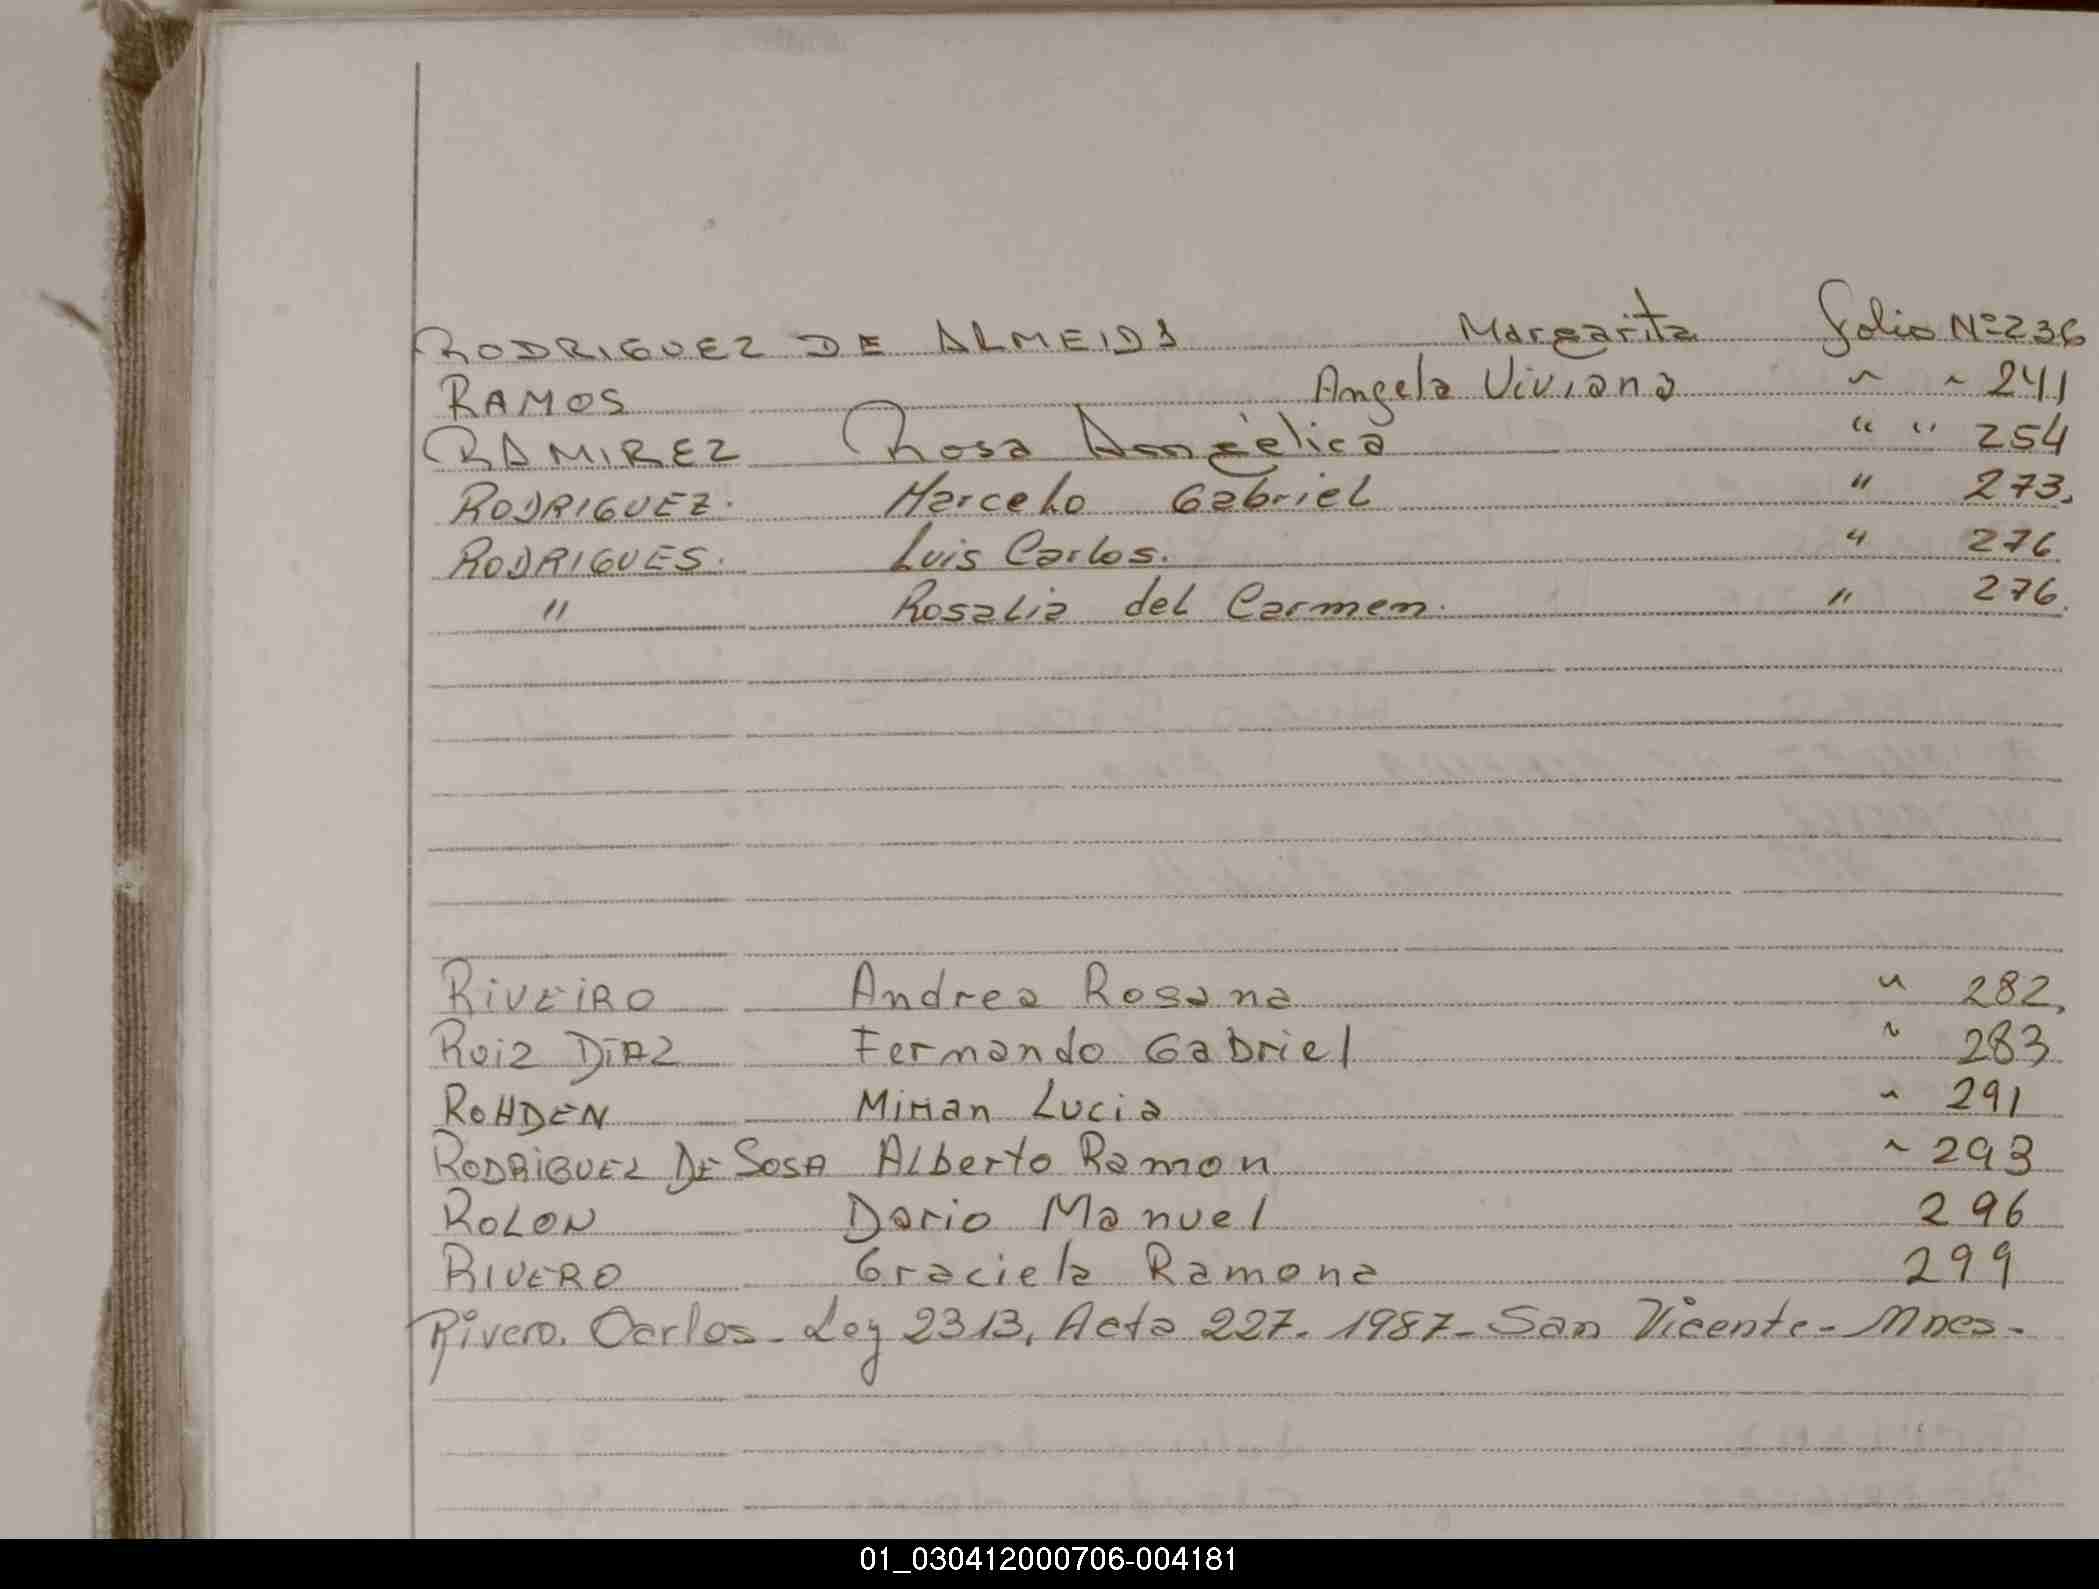 RODRIGUEZ DE ALMEIDA Margarita folio Nº 236
RAMOS Angela Viviana " " 241
RAMIREZ Rosa Angélica " " 254
RODRIGUEZ. Marcelo Gabriel " 273.
RODRIGUES. Luis Carlos. " 276
" Rosalia del Carmen. " 276.
RIVEIRO Andrea Rosana " 282,
RUIZ DIAZ Fernando Gabriel " 283
ROHDEN Mirian Lucia " 291
RODRIGUEZ DE SOSA Alberto Ramon " 293
ROLON Dario Manuel 296
RIVERO Graciela Ramona 299
Rivero. Carlos - Ley 2313, Acta 227. 1987 - San Vicente - Mnes -
01_030412000706-004181